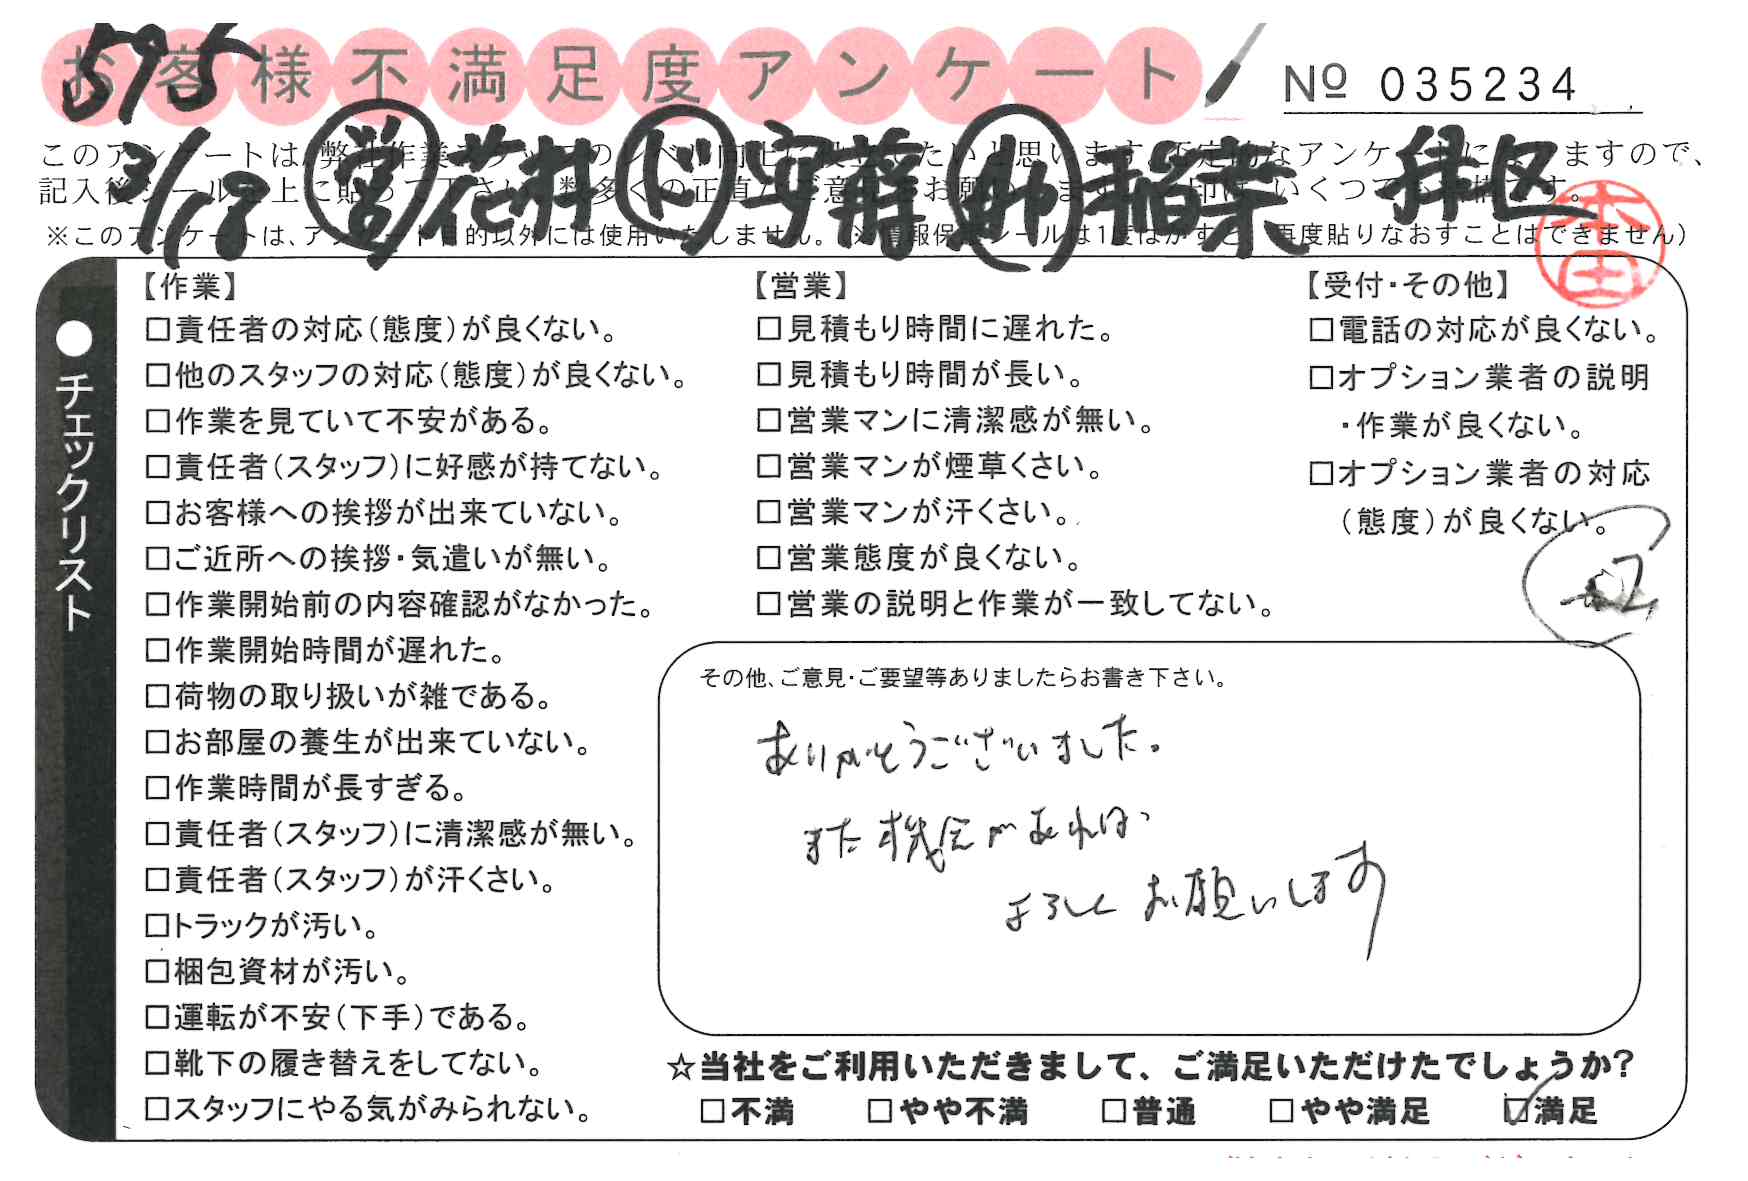 お客様不満足度アンケート
№ 035234
595
3/13 営 花村 ド 安藤 助 稲葉 緑区
このアンケートは、弊社作業スタッフのレベル向上に役立てたいと思います。否定的なアンケートになりますので、
記入後シールを上に貼って下さい。数多くの正直なご意見をお願いします。
※このアンケートは、アンケート目的以外には使用いたしません。(※情報保護シールは1度はがすと、再度貼りなおすことはできません)
本田
●チェックリスト
【作業】
□責任者の対応(態度)が良くない。
□他のスタッフの対応(態度)が良くない。
□作業を見ていて不安がある。
□責任者(スタッフ)に好感が持てない。
□お客様への挨拶が出来ていない。
□ご近所への挨拶・気遣いが無い。
□作業開始前の内容確認がなかった。
□作業開始時間が遅れた。
□荷物の取り扱いが雑である。
□お部屋の養生が出来ていない。
□作業時間が長すぎる。
□責任者(スタッフ)に清潔感が無い。
□責任者(スタッフ)が汗くさい。
□トラックが汚い。
□梱包資材が汚い。
□運転が不安(下手)である。
□靴下の履き替えをしてない。
□スタッフにやる気がみられない。
【営業】
□見積もり時間に遅れた。
□見積もり時間が長い。
□営業マンに清潔感が無い。
□営業マンが煙草くさい。
□営業マンが汗くさい。
□営業態度が良くない。
□営業の説明と作業が一致してない。
【受付・その他】
□電話の対応が良くない。
□オプション業者の説明
・作業が良くない。
□オプション業者の対応
(態度)が良くない。
その他、ご意見・ご要望等ありましたらお書き下さい。
ありがとうございました。
また機会があれば
よろしくお願いします
☆当社をご利用いただきまして、ご満足いただけたでしょうか?
□不満 □やや不満 □普通 □やや満足 ☑満足